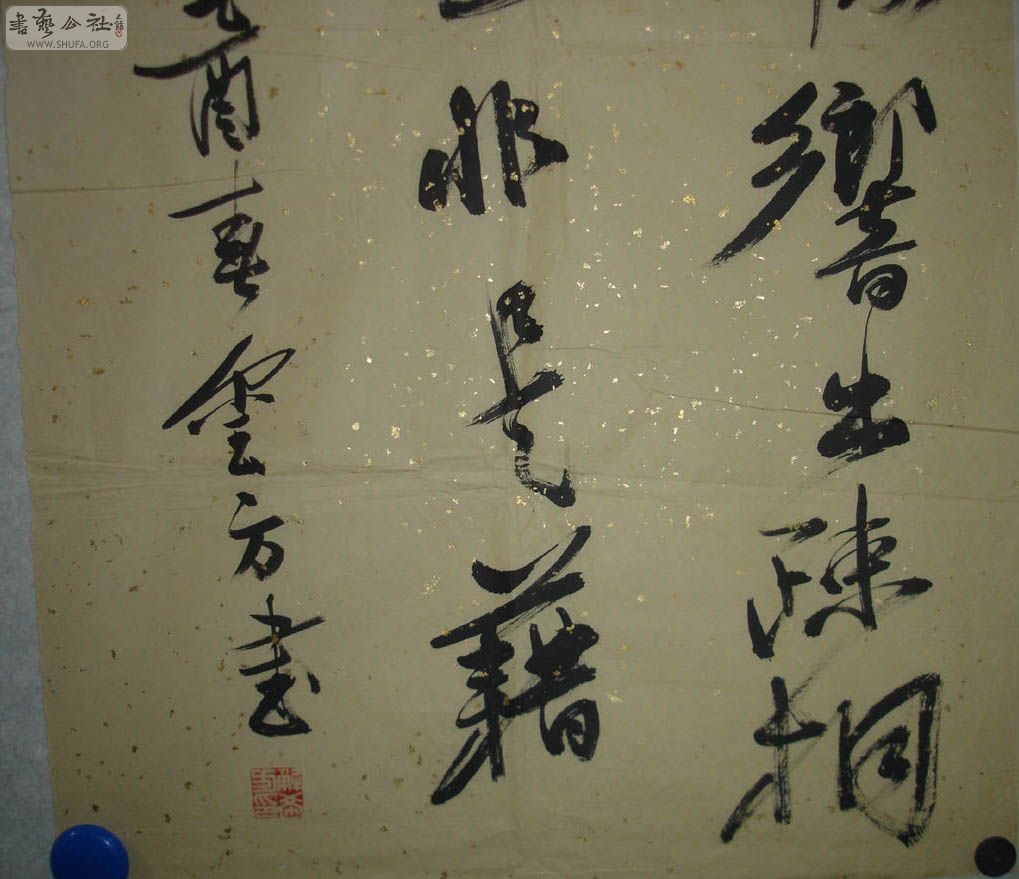 響出疎桐
非是藉
酉春雲方書
書藝公社
WWW.SHUFA.ORG